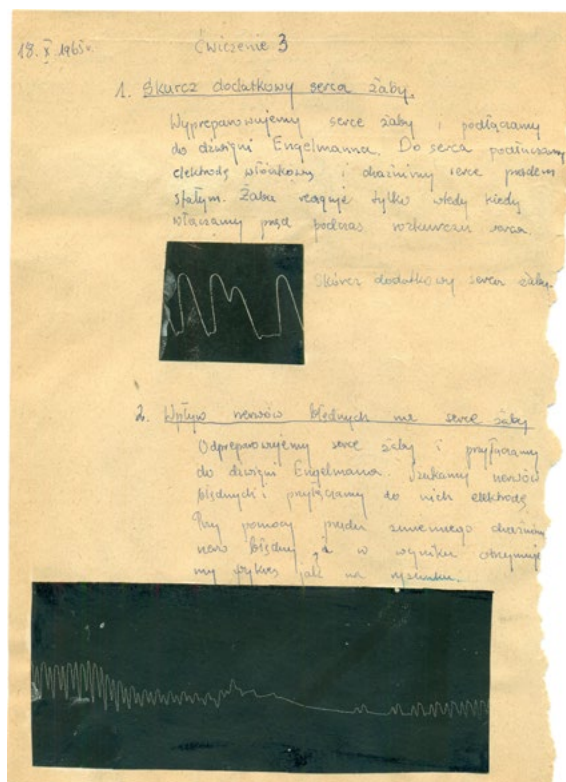 18. X. 1965r. Ćwiczenie 3
1. Skurcz dodatkowy serca żaby.
Wypreparowujemy serce żaby i podłączamy
do dźwigni Engelmanna. Do serca podłączamy
elektrodę włókową i drażnimy serce prądem
stałym. Żaba reaguje tylko wtedy kiedy
włączamy prąd podczas rozkurczu serca.
Skórcz dodatkowy serca żaby.
2. Wpływ nerwów błędnych na serce żaby
Odpreparowujemy serce żaby i przyłączamy
do dźwigni Engelmanna. Szukamy nerwów
błędnych i przyłączamy do nich elektrodę
Przy pomocy prądu zmiennego drażnimy
nerw błędny, a w wyniku otrzymuje
my wykres jak na rysunku.